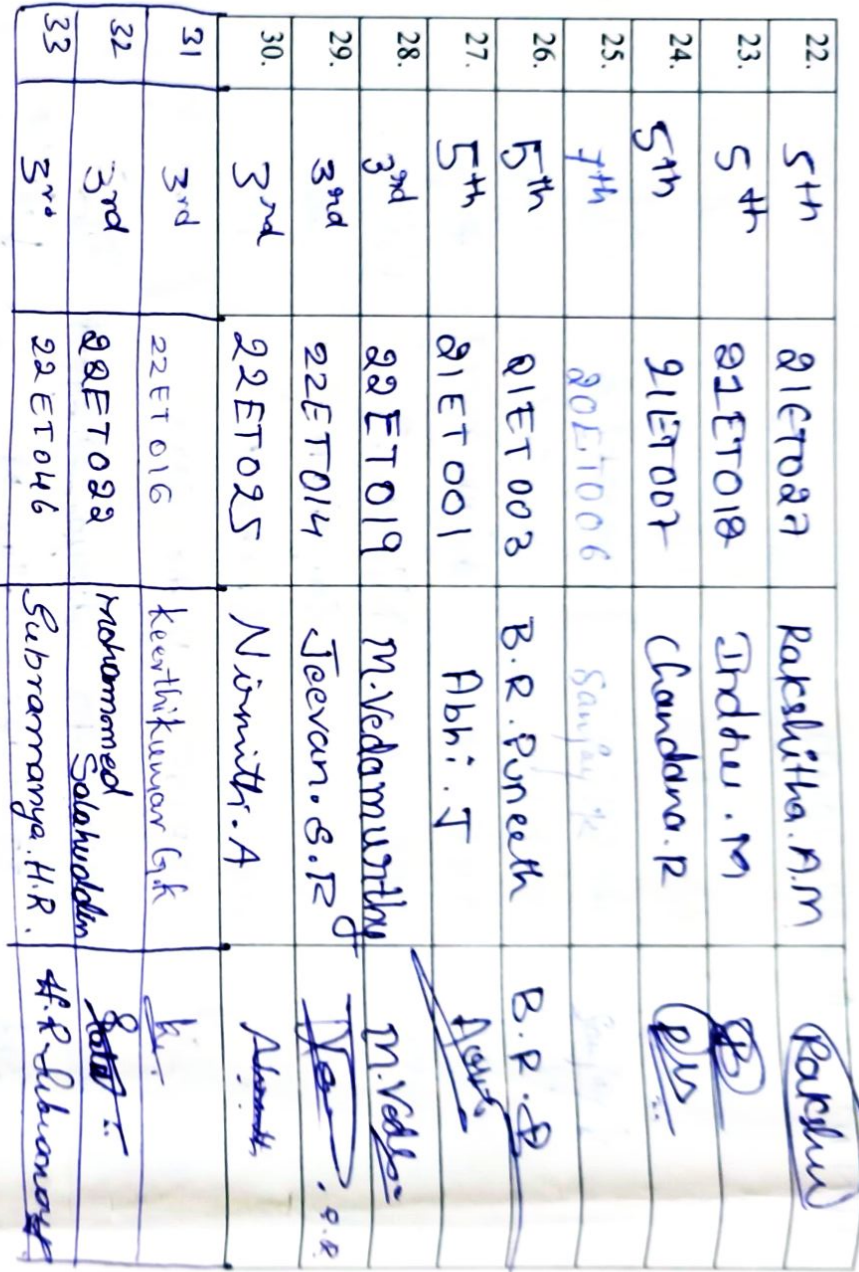 22. 5th 21ET027 Rakshitha.A.M Rakshu
23. 5th 21ET012 Indhu.M
24. 5th 21ET007 Chandana.R
25. 7th 20ET006 Sanjay K
26. 5th 21ET003 B.R.Puneeth B.R.P
27. 5th 21ET001 Abhi.J
28. 3rd 22ET019 M.Vedamurthy M.Veda
29. 3rd 22ET014 Jeevan.S.R
30. 3rd 22ET025 Nirmith.A
31 3rd 22ET016 Keerthikumar G.K
32 3rd 22ET022 Mohammed Salahuddin
33 3rd 22ET046 Subramanya.H.R. H.R.Subramanya